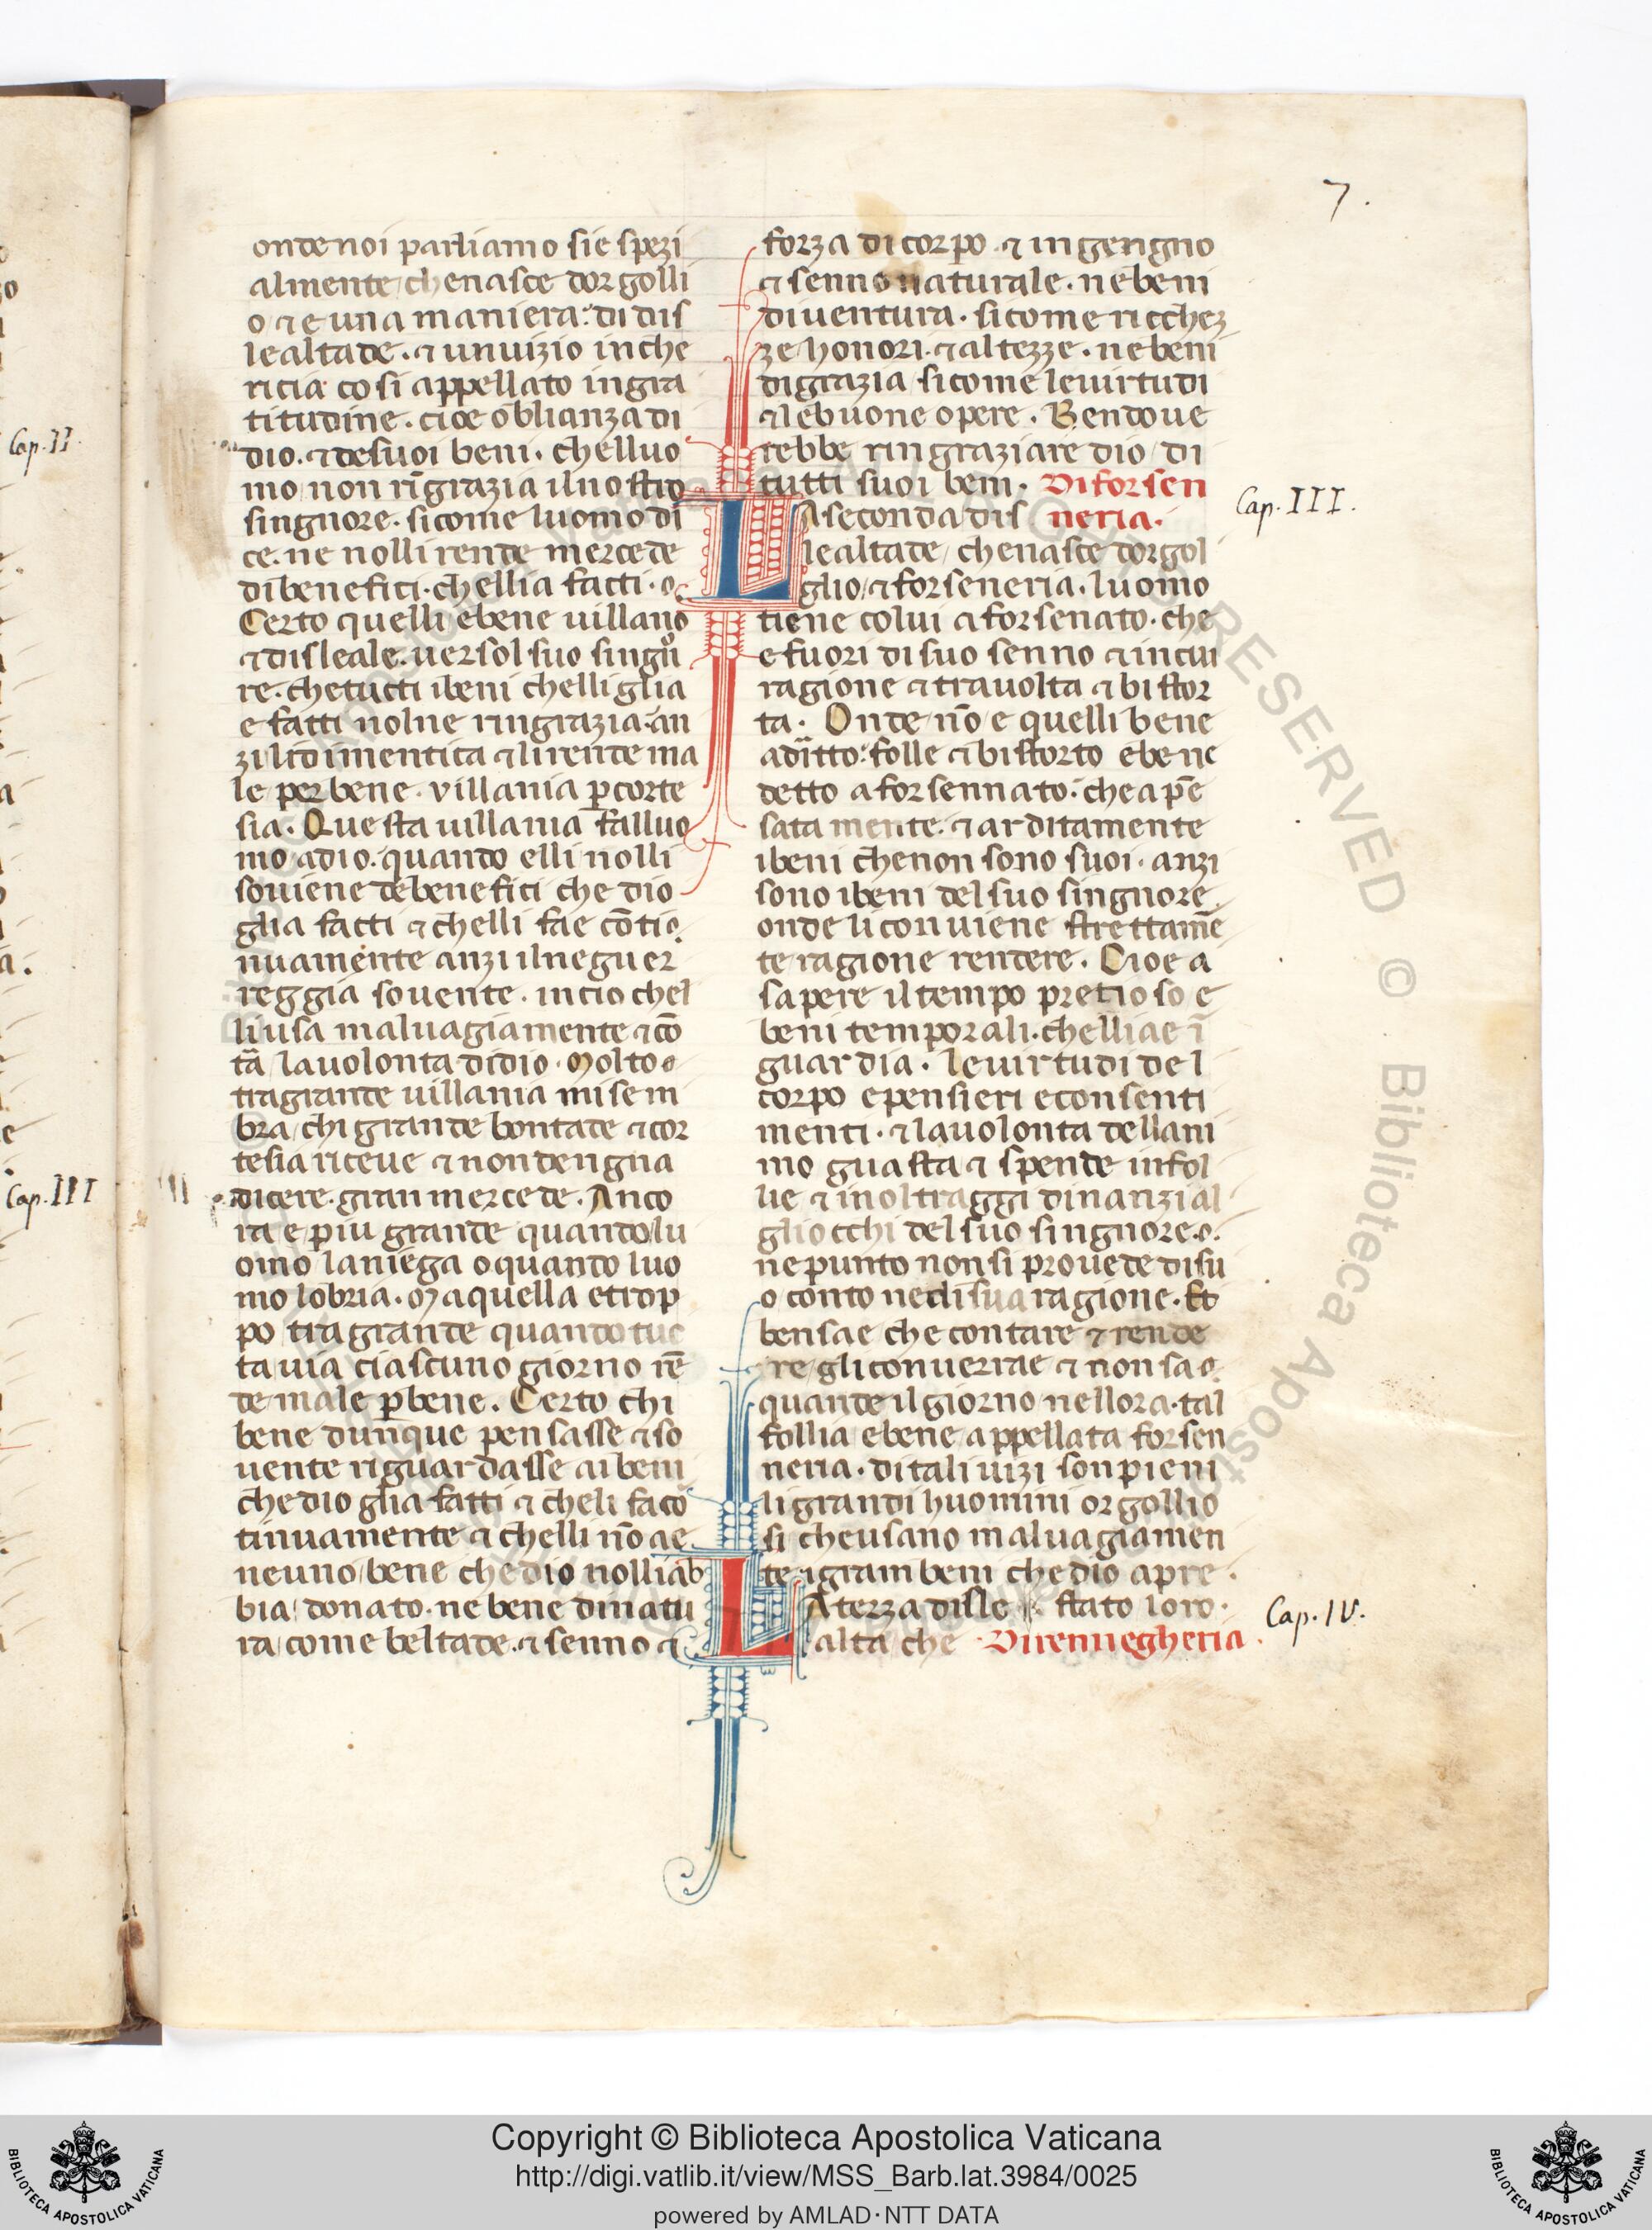 7.
onde noi parliamo sie spezi
almente che nasce dorgolli
o ⁊ e una maniera di dis
lealtade · ⁊ unuizio inche
ricia cosi appellato ingra
titudine · cioe oblianza di
dio · ⁊ desuoi beni · chelluo
mo non rīgrazia ilnostro
singnore · sicome luomo di
ce · ne nolli rende mercede
dibenefici · chellia facti ·
Certo quelli ebene uillano
⁊ disleale · uersol suo singn̄o
re · chetucti ibeni chelli glia
e fatti nolne ringrazia · an
zi li dimentica ⁊ li rende ma
le per bene · villania ꝑ corte
sia · Questa uillania falluo
mo adio · quando elli nolli
souiene debenefici che dio
glia facti ⁊ chelli fae cōti
nuamente anzi ilneguer
reggia souente · incio chel
li usa maluagiamente ⁊ cō
tā lauolonta didio · Molto e
tragrande uillania misem
bra chi grande bontade ⁊ cor
tesia riceue ⁊ non dengna
dicere · gran mercede · Anco
ra e piu grande quando lu
omo laniega o quando luo
mo lobria · Ma quella etrop
po tragrande quando tuc
ta uia ciascuno giorno rē
de male ꝑ bene · Certo chi
bene dunque pensasse ⁊ so
uente riguardasse ai beni
che dio glia fatti ⁊ cheli fa cō
tinuamente ⁊ chelli nō ae
neuno bene che dio nolli ab
bia donato · ne bene dinatu
ra come beltade · ⁊ senno ⁊
forza di corpo · ⁊ ingengno
⁊ senno naturale · ne beni
diuentura · sicome ricchez
ze honori · ⁊ altezze · ne beni
digrazia sicome leuirtudi
⁊ lebuone opere · Ben doue
rebbe ringraziare dio di
tutti suoi beni · Di forsen
LA seconda dis neria ·
Cap. III.
lealtade che nasce dorgol
glio ⁊ forseneria · luomo
tiene colui aforsenato · che
e fuori di suo senno ⁊ in cui
ragione ⁊ trauolta ⁊ bistor
ta · Onde nō e quelli bene
aditto · folle ⁊ bistorto ebene
detto aforsennato · che apē
satamente · ⁊ arditamente
ibeni che non sono suoi · anzi
sono ibeni del suo singnore ·
onde li conuiene strettamē
te ragione rendere · Cioe a
sapere il tempo pretioso e
beni temporali · chelliae ī
guardia · le uirtudi del
corpo e pensieri e consenti
menti · ⁊ lauolonta dellani
mo guasta ⁊ spende infol
lie ⁊ in oltraggi dinanzi al
gli occhi del suo singnore ·
ne punto non si prouede di su
o conto ne di sua ragione · Et
ben sae che contare ⁊ rende
re gli conuerrae ⁊ non sa
quande il giorno nellora · tal
follia ebene appellata forsen
neria · di tali uizi son pieni
li grandi huomini orgollio
si che usano maluagiamen
te igram beni che dio apre ·
LA terza disle stato loro ·
Cap. IV.
alta che Di rennegheria
Cap. II
Cap. III
© Biblioteca Apostolica Vaticana
ALL RIGHTS RESERVED
Copyright © Biblioteca Apostolica Vaticana
http://digi.vatlib.it/view/MSS_Barb.lat.3984/0025
powered by AMLAD·NTT DATA
BIBLIOTECA APOSTOLICA VATICANA
BIBLIOTECA APOSTOLICA VATICANA